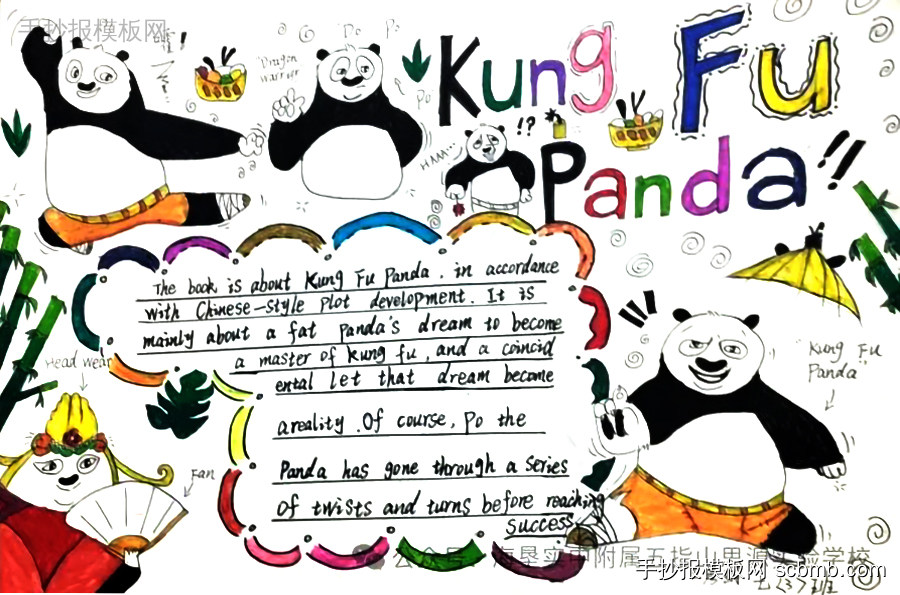 手抄报模板网
Do Po
"Dragon
warrior
Po
Kung Fu
!?
Panda!!
HAAA...
The book is about Kung Fu Panda . in accordance
with Chinese-style plot development. It is
mainly about a fat panda's dream to become
a master of kung fu, and a coincid
ental Let that dream become
areality .Of course, Po the
Panda has gone through a series
of twists and turns before reaching
success.
Head wear
Fan
"Kung Fu
Panda"
公众号·海垦实中附属五指山思源实验学校
手抄报模板网 scbmb.com